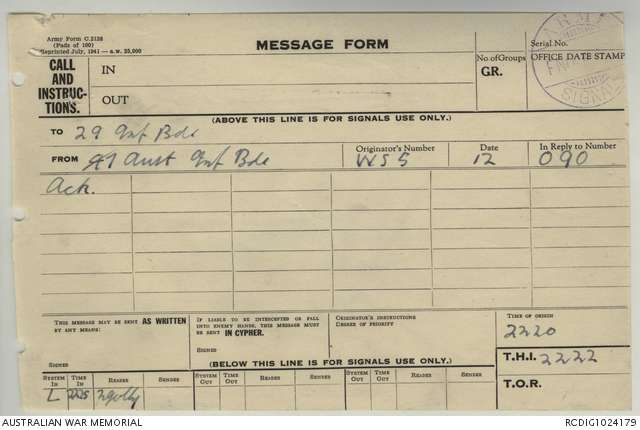 Army Form C.2128
(Pads of 100)
Reprinted July, 1941—a.w. 25,000
MESSAGE FORM
Serial No.
CALL AND INSTRUC-TIONS.
IN
OUT
No. of Groups
GR.
OFFICE DATE STAMP
ARMY
SIGNALS
(ABOVE THIS LINE IS FOR SIGNALS USE ONLY.)
TO 29 Inf Bde
FROM 47 Aust Inf Bde
Originator's Number
WS5
Date
12
In Reply to Number
090
Ack.
THIS MESSAGE MAY BE SENT AS WRITTEN BY ANY MEANS.
SIGNED
IF LIABLE TO BE INTERCEPTED OR FALL INTO ENEMY HANDS, THIS MESSAGE MUST BE SENT IN CYPHER.
SIGNED
ORIGINATOR'S INSTRUCTIONS
DEGREE OF PRIORITY
TIME OF ORIGIN
2220
T.H.I. 2222
T.O.R.
(BELOW THIS LINE IS FOR SIGNALS USE ONLY.)
SYSTEM IN TIME IN READER SENDER SYSTEM OUT TIME OUT READER SENDER SYSTEM OUT TIME OUT READER SENDER
L 2225
AUSTRALIAN WAR MEMORIAL
RCDIG1024179